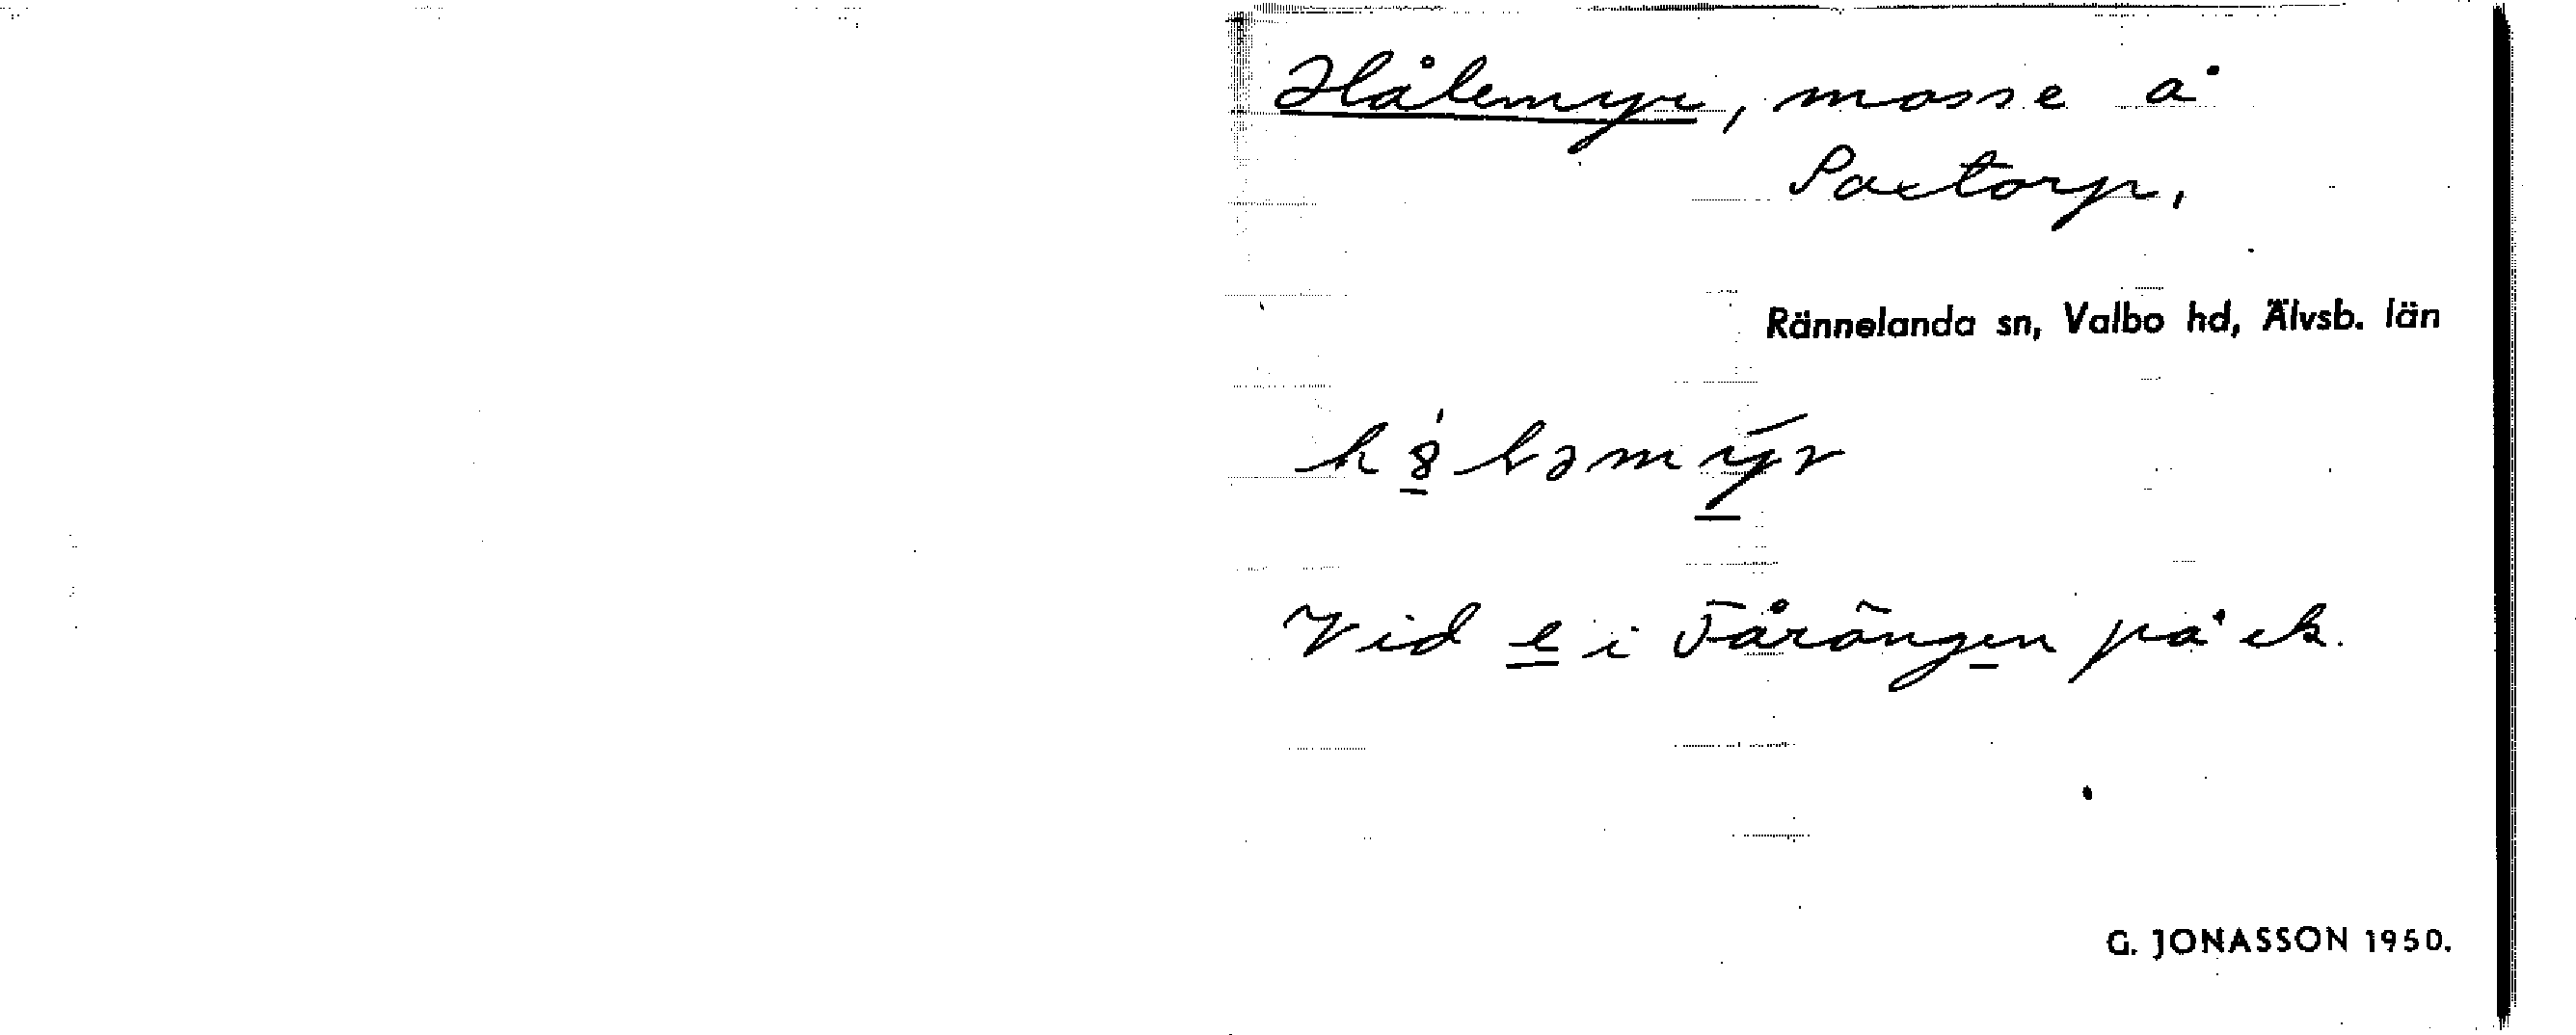 Hålemyr, mosse å
Paxtorp.
Rännelanda sn, Valbo hd, Älvsb. län
Vid e i Fårängen på ek.
G. JONASSON 1950.